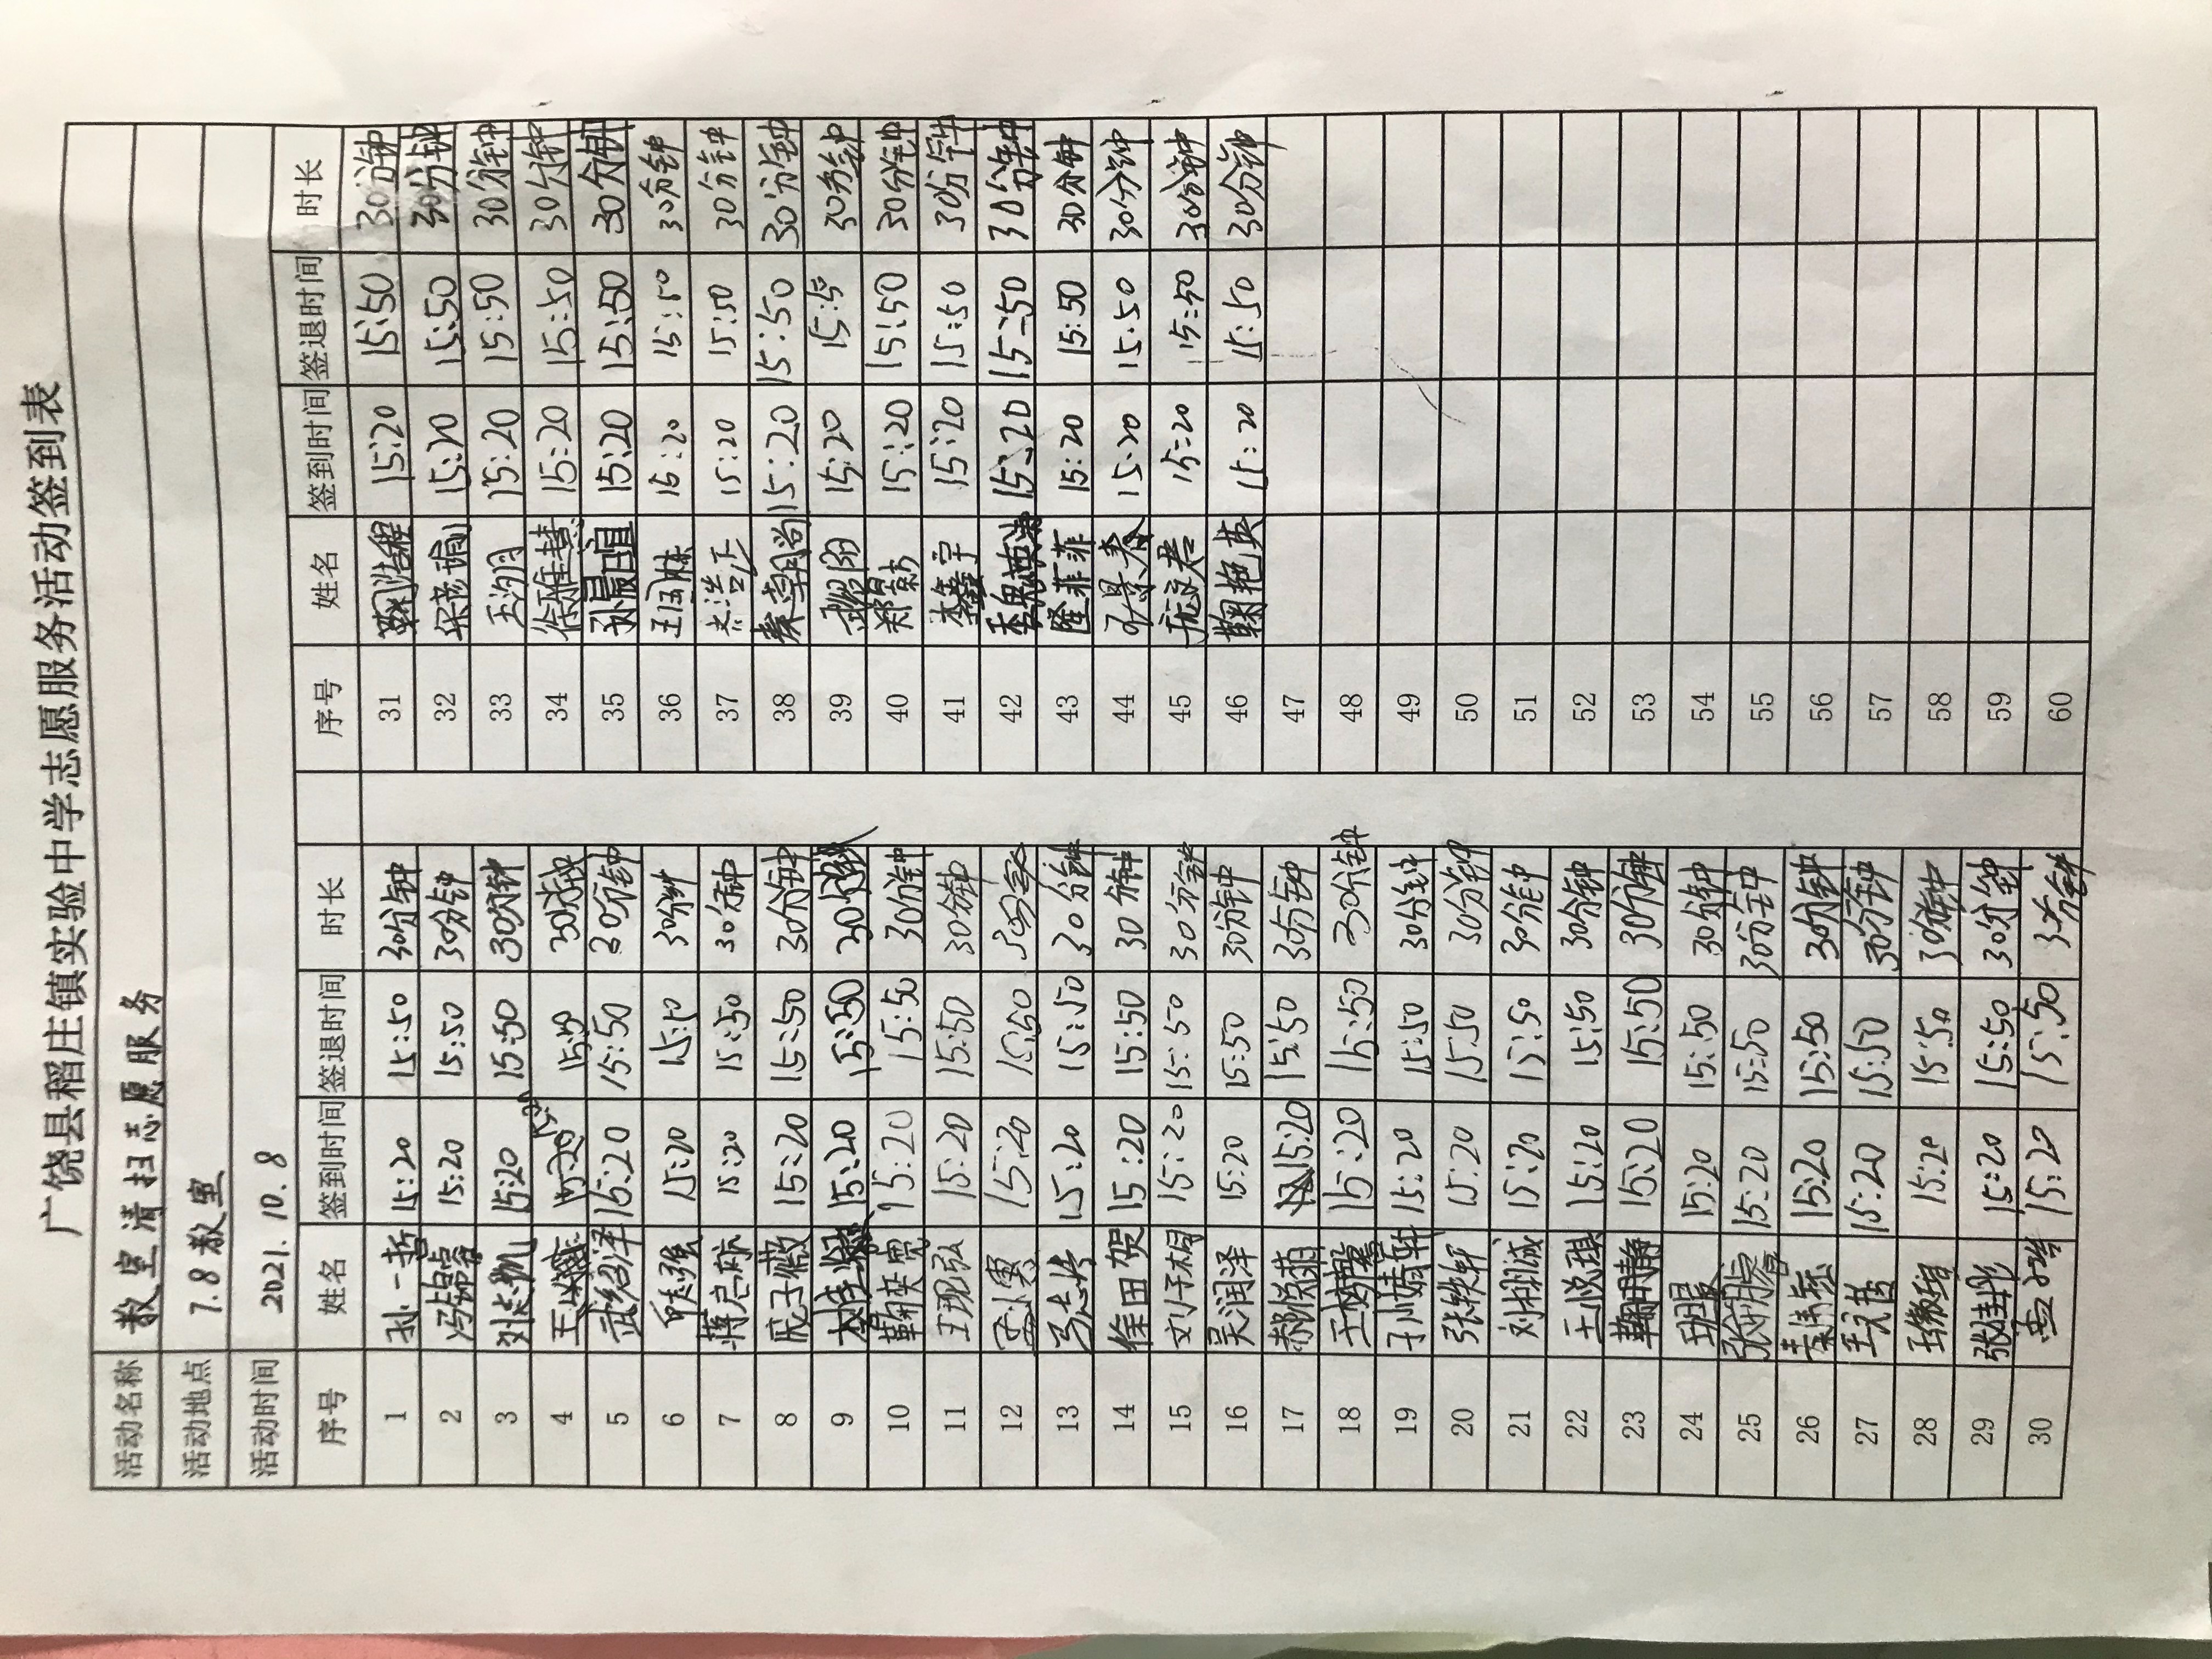 广饶县稻庄镇实验中学志愿服务活动签到表
活动名称 教室清扫志愿服务
活动地点 7.8教室
活动时间 2021.10.8
序号 姓名 签到时间 签退时间 时长 序号 姓名 签到时间 签退时间 时长
1 孙一哲 15:20 15:50 30分钟 31 鞠浩程 15:20 15:50 30分钟
2 冯锦睿 15:20 15:50 30分钟 32 15:20 15:50 30分钟
3 15:20 15:50 30分钟 33 王汐月 15:20 15:50 30分钟
4 15:20 15:50 30分钟 34 徐雅慧 15:20 15:50 30分钟
5 武绍泽 15:20 15:50 30分钟 35 孙晨暄 15:20 15:50 30分钟
6 15:20 15:50 30分钟 36 15:20 15:50 30分钟
7 蒋启航 15:20 15:50 30分钟 37 浩正 15:20 15:50 30分钟
8 子薇 15:20 15:50 30分钟 38 秦朝尚 15:20 15:50 30分钟
9 15:20 15:50 30分钟 39 15:20 15:5 30分钟
10 鞠英宽 15:20 15:50 30分钟 40 郑 15:20 15:50 30分钟
11 王现弘 15:20 15:50 30分钟 41 李鑫宇 15:20 15:50 30分钟
12 15:20 15:50 42 15:20 15:50 30分钟
13 冯志 15:20 15:50 30分钟 43 隆菲菲 15:20 15:50 30分钟
14 徐田贺 15:20 15:50 30分钟 44 景春 15:20 15:50 30分钟
15 刘子木 15:20 15:50 30分钟 45 15:20 15:50 30分钟
16 吴润泽 15:20 15:50 30分钟 46 鞠艳英 15:20 15:50 30分钟
17 郝悦菲 15:20 15:50 30分钟 47
18 王 馨 15:20 15:50 30分钟 48
19 于婧轩 15:20 15:50 30分钟 49
20 张轶轩 15:20 15:50 30分钟 50
21 刘树诚 15:20 15:50 30分钟 51
22 王悦琪 15:20 15:50 30分钟 52
23 鞠明静 15:20 15:50 30分钟 53
24 15:20 15:50 30分钟 54
25 张 15:20 15:50 30分钟 55
26 15:20 15:50 30分钟 56
27 15:20 15:50 30分钟 57
28 15:20 15:50 30分钟 58
29 张 15:20 15:50 30分钟 59
30 15:20 15:50 60